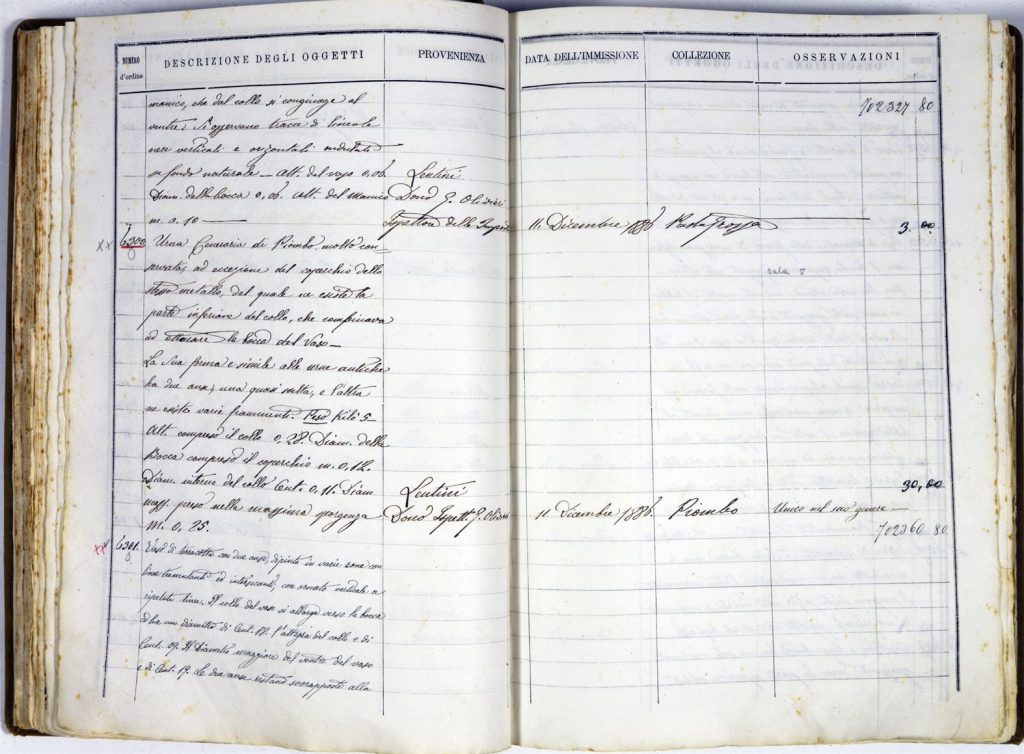 NUMERO d'ordine
DESCRIZIONE DEGLI OGGETTI
PROVENIENZA
DATA DELL'IMMISSIONE
COLLEZIONE
OSSERVAZIONI
manico, che dal collo si congiunge al
ventre. Si osservano tracce di lineole
nere verticali e orizzontali ondulate
su fondo naturale — Alt. del vaso 0,06.
Diam. della bocca 0,06. Alt. del manico
m. 0.10 —
Lentini
Dono G.
11. Dicembre 1886
3,00
702327 80
xx 6300
Urna Cineraria di Piombo, molto con-
servata, ad eccezione del coperchio dello
stesso metallo, del quale ne esiste la
parte inferiore del collo, che combinava
ad otturare la bocca del Vaso —
La sua forma è simile alle urne antiche
ha due anse, una quasi svelta, e l'altra
ne esiste varii frammenti. Peso Kilò 5
Alt. compreso il collo 0,28. Diam. della
Bocca compreso il coperchio m. 0,12.
Diam. interno del collo Cent. 0,11. Diam.
mass. preso nella massima sporgenza
M. 0,25.
Lentini
Dono Ispett. G.
11. Dicembre 1886
Piombo
Unico nel suo genere —
30,00
702360 80
sala V
xx 6301.
Vaso di terracotta con due anse, dipinto in varie zone con
linee tremolanti ed intersecanti, con ornato
ripetute linea. Il collo del vaso si allarga verso la bocca
ed ha un diametro di Cent. 12. l'altezza del collo è di
Cent. 07. Il Diametro maggiore del ventre del vaso
è di Cent. 19. Le due anse restano sovrapposte alla